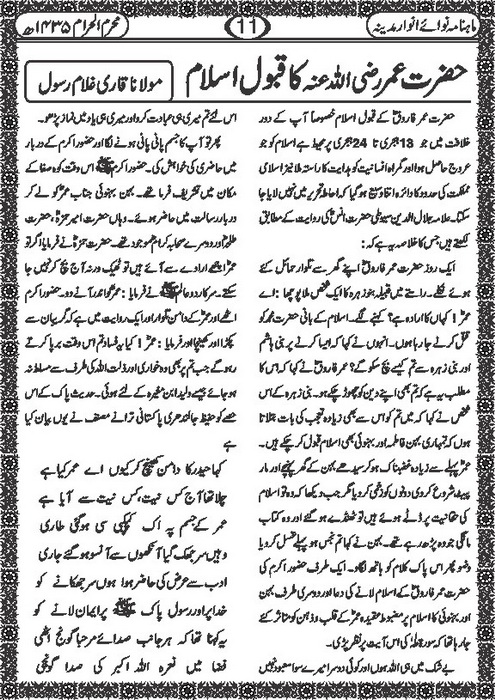 ماہنامہ نوائے انوار مدینہ
11
محرم الحرام ۱۴۳۵ھ
حضرت عمر رضی اللہ عنہ کا قبول اسلام
مولانا قاری غلام رسول
حضرت عمر فاروقؓ کے قبول اسلام خصوصاً آپ کے دور
خلافت میں جو 13ہجری تا 24ہجری پر محیط ہے اسلام کو جو
عروج حاصل ہوا اور گمراہ انسانیت کو ہدایت کا راستہ ملا نیز اسلامی
مملکت کی حدود کا دائرہ اتنا وسیع ہو گیا کہ احاطہ تحریر میں نہیں لایا جا
سکتا۔ علامہ جلال الدین سیوطی حضرت انسؓ کی روایت کے مطابق
لکھتے ہیں جس کا خلاصہ یہ ہے کہ:
ایک روز حضرت عمر فاروقؓ اپنے گھر سے تلوار حمائل کئے
ہوئے نکلے۔ راستے میں قبیلہ بنو زہرہ کا ایک شخص ملا پوچھا: اے
عمر! کہاں کا ارادہ ہے؟ کہنے لگے۔ اسلام کے بانی حضرت محمدؐ کو
قتل کرنے جا رہا ہوں۔ انہوں نے کہا کہ ایسا کرنے پر بنی ہاشم
اور بنی زہرہ سے تم کیسے بچ سکو گے؟ عمر فاروقؓ نے کہا کہ اس کا
مطلب یہ ہے کہ تم بھی اپنے دین کو چھوڑ چکے ہو۔ بنی زہرہ کے اس
شخص نے کہا کہ میں تم کو اس سے بھی زیادہ تعجب کی بات بتلاتا
ہوں کہ تمہاری بہن فاطمہ اور بہنوئی بھی اسلام قبول کر چکے ہیں۔
عمرؓ پہلے سے زیادہ غضبناک ہو کر سیدھے بہن کے گھر پہنچے اور مار
پیٹ شروع کر دی دونوں کو زخمی کر دیا مگر جب دیکھا کہ وہ تو اسلام
کی حقانیت پر ڈٹے ہوئے ہیں تو ٹھنڈے ہو گئے اور وہ کتاب
مانگی جو وہ پڑھ رہے تھے۔ بہن نے کہا تم نجس ہو پہلے غسل کر و یا
وضو پھر اس پاک کلام کو ہاتھ لگاؤ۔ ایک طرف حضور اکرم کی
حضرت عمر فاروقؓ کے اسلام لانے کی دعا اور دوسری طرف بہن
اور بہنوئی کا اسلام پر مضبوط عقیدہ عمر کے قلب و ذہن کو متاثر کئے
جا رہا تھا کہ سورہ طٰہٰ کی اس آیت پر نظر پڑی۔
بے شک میں ہی اللہ ہوں اور کوئی دوسرا میرے سوا معبود نہیں
اس لئے تم میری ہی عبادت کرو اور میری ہی یاد میں نماز پڑھو۔
پھر تو آپ کا جسم پانی پانی ہونے لگا اور حضور اکرم کے دربار
میں حاضری کی خواہش کی۔ حضور اکرم ﷺ اس وقت کوہ صفا کے
مکان میں تشریف فرما تھے۔ بہن بہنوئی جناب عمرؓ کو لے کر
دربار رسالت میں حاضر ہوئے۔ وہاں حضرت امیر حمزہؓ، حضرت
طلحہؓ اور دوسرے صحابہ کرام موجود تھے۔ حضرت حمزہؓ نے فرمایا اگر تو
عمرؓ اچھے ارادے سے آئے ہیں تو ٹھیک ورنہ آج بچ کر نہیں جا
سکتے۔ سرکار دو عالم ﷺ نے فرمایا: عمرؓ کو اندر آنے دو۔ حضور اکرم
اٹھے اور عمرؓ کے دامن و تلوار اور ایک روایت میں ہے کہ گریبان سے
پکڑا اور کھینچا اور فرمایا: عمر! کیا یہ فساد تم اس وقت برپا کرتے
رہو گے جب تم پر بھی وہ خواری اور ذلت اللہ کی طرف سے مسلط نہ
ہو جائے جیسے ولید ابن مغیرہ کے لئے ہوئی۔ حدیث پاک کے اس
حصے کو حفیظ جالندھری پاکستانی ترانے مصنف نے یوں بیان کیا
ہے
کہا حیدر کا دامن کھینچ کر کیوں اے عمر کیا ہے
چلا تھا آج کس نیت، کس نیت سے آیا ہے
عمر کے جسم پہ اک کپکپی سی ہو گئی طاری
وہیں سر جھک گیا آنکھوں سے آنسو ہو گئے جاری
ادب سے عرض کی حاضر ہوا ہوں سر جھکانے کو
خدا پر اور رسول پاک ﷺ پر ایمان لانے کو
یہ کہنا تھا کہ ہر جانب صدائے مرحبا گونج اٹھی
فضا میں نعرہ اللہ اکبر کی صدا گونجی